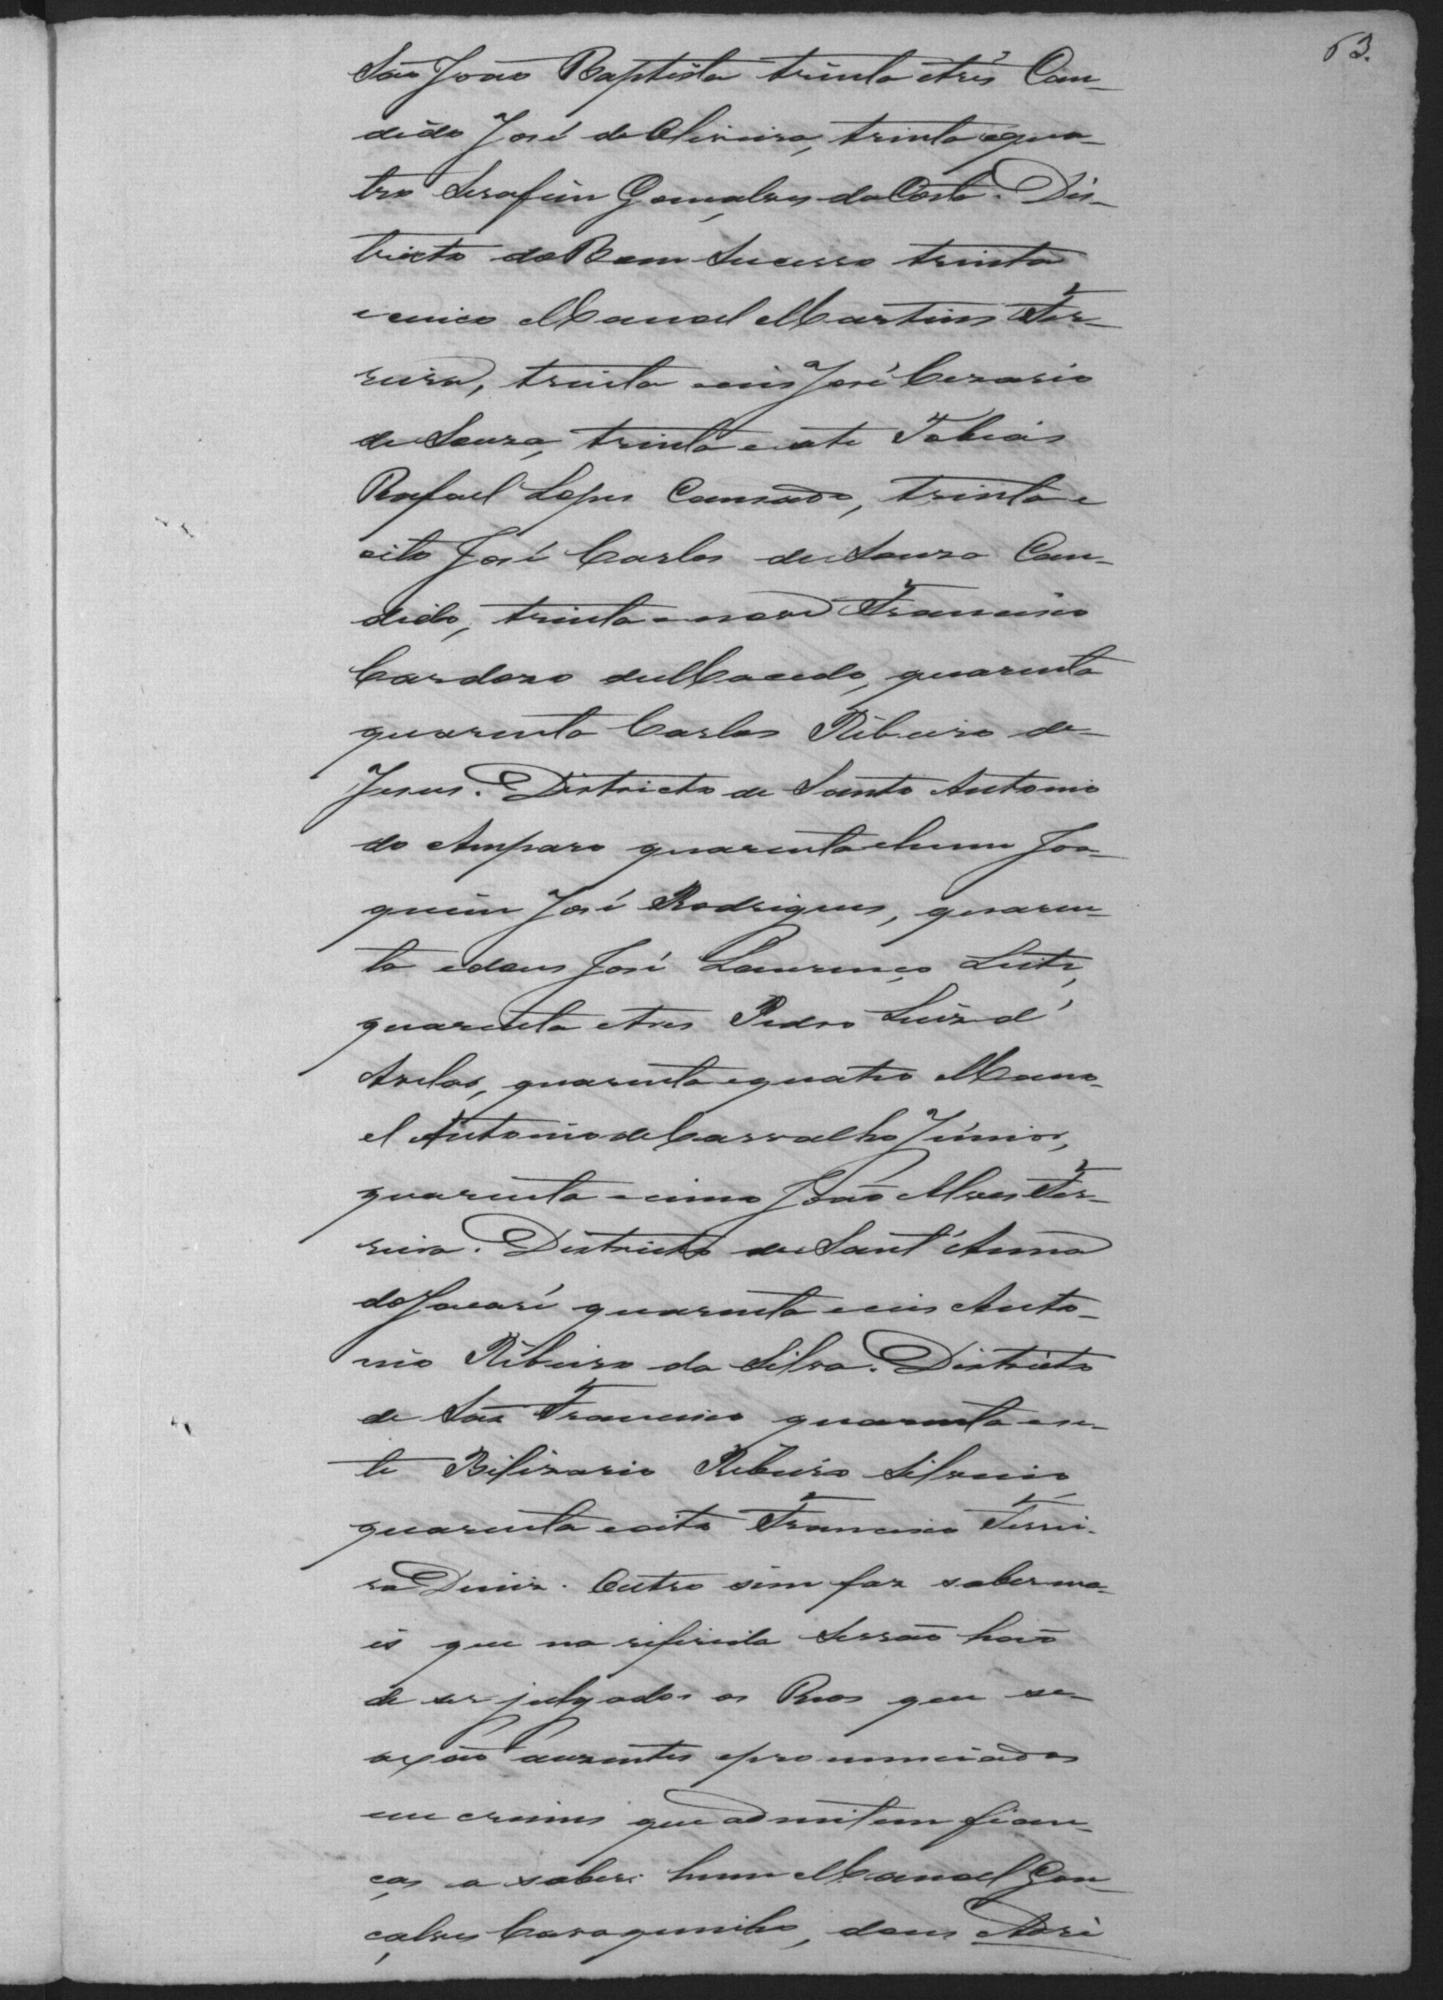 63.
São João Baptista trinta e tres Can-
dido José de Oliveira, trinta e qua-
tro Serafim Gonçalves da Costa. Dis-
tricto do Bom Sucesso trinta
e cinco Manoel Martins Fer-
reira, trinta e seis José Cezario
de Souza, trinta e sete Tobias
Rafael Lopes Cansado, trinta e
oito José Carlos de Souza Can-
dido, trinta e nove Francisco
Cardozo de Macedo, quarenta
quarenta Carlos Ribeiro de
Jesus. Districto de Santo Antonio
do Amparo quarenta e hum Joa-
quim José Rodrigues, quaren-
ta e dous José Lourenço Leite,
quarenta e tres Pedro Luiz d'
Avelar, quarenta e quatro Mano-
el Antonio de Carvalho Júnior,
quarenta e cinco João Alves Fer-
reira. Districto de Sant'Anna
do Jacaré quarenta e seis Anto-
nio Ribeiro da Silva. Districto
de São Francisco quarenta e se-
te Bilizario Ribeiro Silverio
quarenta e oito Francisco Ferrei-
ra Diniz. Outro sim faz saber ma-
is que na referida Sessão hão
de ser julgados os Reos que se
axão auzentes e pronunciados
em crimes que admitem fian-
ças a saber: hum Manoel Gon-
çalves, dous José